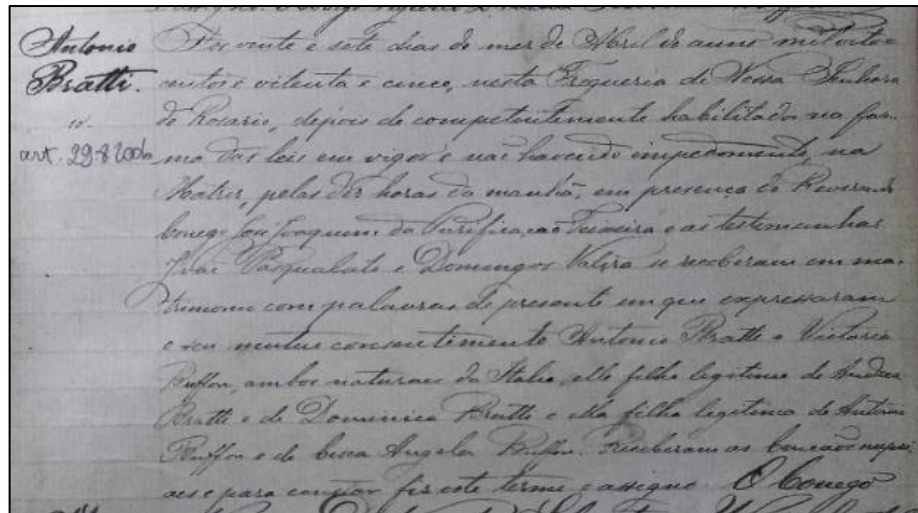 Antonio
Bratti.
art. 29-8-2006
Aos vinte e sete dias do mes de Abril do anno mil oito=
centos e oitenta e cinco, nesta Freguezia de Nossa Senhora
do Rosario, depois de competentemente habilitados na for-
ma das leis em vigor e não havendo impedimento, na
Matriz, pelas dez horas da manhã, em presença do Reverendo
Conego José Joaquim da Purificação Teixeira e as testemunhas
José Pasqualato e Domingos se receberam em ma-
trimonio com palavras de presente em que expressaram
o seu mutuo consentimento Antonio Bratti e Victoria
Buffon, ambos naturaes da Italia, elle filho legitimo de Andrea
Bratti e de Dominica Bratti e ella filha legitima de Antonio
Buffon e de Angela Buffon. Receberam as bençãos nupci-
aes e para constar fiz este termo e assigno. O Conego